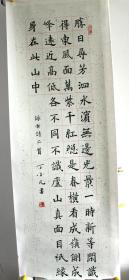 勝日尋芳泗水濱無邊光景一時新等閒識
得東風面萬紫千紅總是春橫看成嶺側成
峰遠近高低各不同不識廬山真面目祇緣
身在此山中
古詩二首